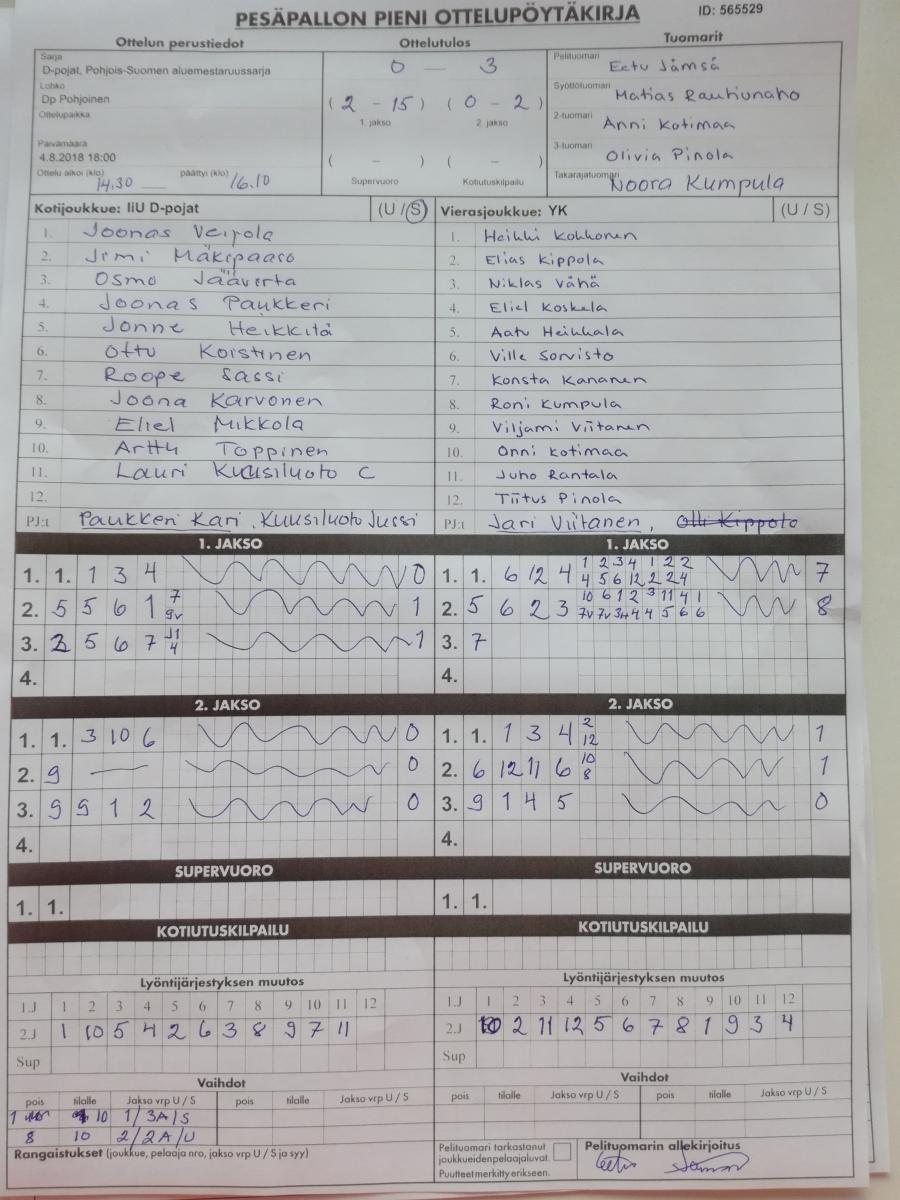 PESÄPALLON PIENI OTTELUPÖYTÄKIRJA
ID: 565529
Ottelun perustiedot
Ottelutulos
Tuomarit
Sarja
D-pojat, Pohjois-Suomen aluemestaruussarja
Lohko
Dp Pohjoinen
Ottelupaikka
Päivämäärä
4.8.2018 18:00
Ottelu alkoi (klo) 14.30 päättyi (klo) 16.10
0 — 3
(2 - 15) (0 - 2)
1. jakso 2. jakso
( - ) ( - )
Supervuoro Kotiutuskilpailu
Pelituomari Eetu Jämsä
Syöttötuomari Matias Rautiunaho
2-tuomari Anni Kotimaa
3-tuomari Olivia Pinola
Takarajatuomari Noora Kumpula
Kotijoukkue: IiU D-pojat (U / S)
1. Joonas Veijola
2. Jimi Mäkipaaso
3. Osmo Jääverta
4. Joonas Paukkeri
5. Jonne Heikkilä
6. Ottu Koistinen
7. Roope Sassi
8. Joona Karvonen
9. Eliel Mikkola
10. Arttu Toppinen
11. Lauri Kuusiluoto C
12.
PJ:t Paukkeri Kari, Kuusiluoto Jussi
Vierasjoukkue: YK (U / S)
1. Heikki Kokkonen
2. Elias Kippola
3. Niklas Vähä
4. Eliel Koskela
5. Aatu Heikkala
6. Ville Sorvisto
7. Konsta Kananen
8. Roni Kumpula
9. Viljami Viitanen
10. Onni Kotimaa
11. Juho Rantala
12. Tiitus Pinola
PJ:t Jari Viitanen, Olli Kippola
1. JAKSO
1. 1. 1 3 4 0
2. 5 5 6 1 7 9v 1
3. 2 5 6 7 11 4 1
4.
1. JAKSO
1. 1. 6 12 4 1 2 3 4 1 2 2 7
4 5 6 12 2 2 4
2. 5 6 2 3 10 6 1 2 3 11 4 1 8
7v 7v 3v 4 4 5 6 6
3. 7
4.
2. JAKSO
1. 1. 3 10 6 0
2. 9 — 0
3. 9 9 1 2 0
4.
2. JAKSO
1. 1. 1 3 4 2 12 1
2. 6 12 11 6 10 8 1
3. 9 1 4 5 0
4.
SUPERVUORO
1. 1.
SUPERVUORO
1. 1.
KOTIUTUSKILPAILU
KOTIUTUSKILPAILU
Lyöntijärjestyksen muutos
1.J 1 2 3 4 5 6 7 8 9 10 11 12
2.J 1 10 5 4 2 6 3 8 9 7 11
Sup
Lyöntijärjestyksen muutos
1.J 1 2 3 4 5 6 7 8 9 10 11 12
2.J 10 2 11 12 5 6 7 8 1 9 3 4
Sup
Vaihdot
pois tilalle Jakso vrp U / S pois tilalle Jakso vrp U / S
1 10 1/3A/S
8 10 2/2A/U
Rangaistukset (joukkue, pelaaja nro, jakso vrp U / S ja syy)
Vaihdot
pois tilalle Jakso vrp U / S pois tilalle Jakso vrp U / S
Pelituomari tarkastanut
joukkueidenpelaajaluvat.
Puutteet merkitty erikseen.
Pelituomarin allekirjoitus